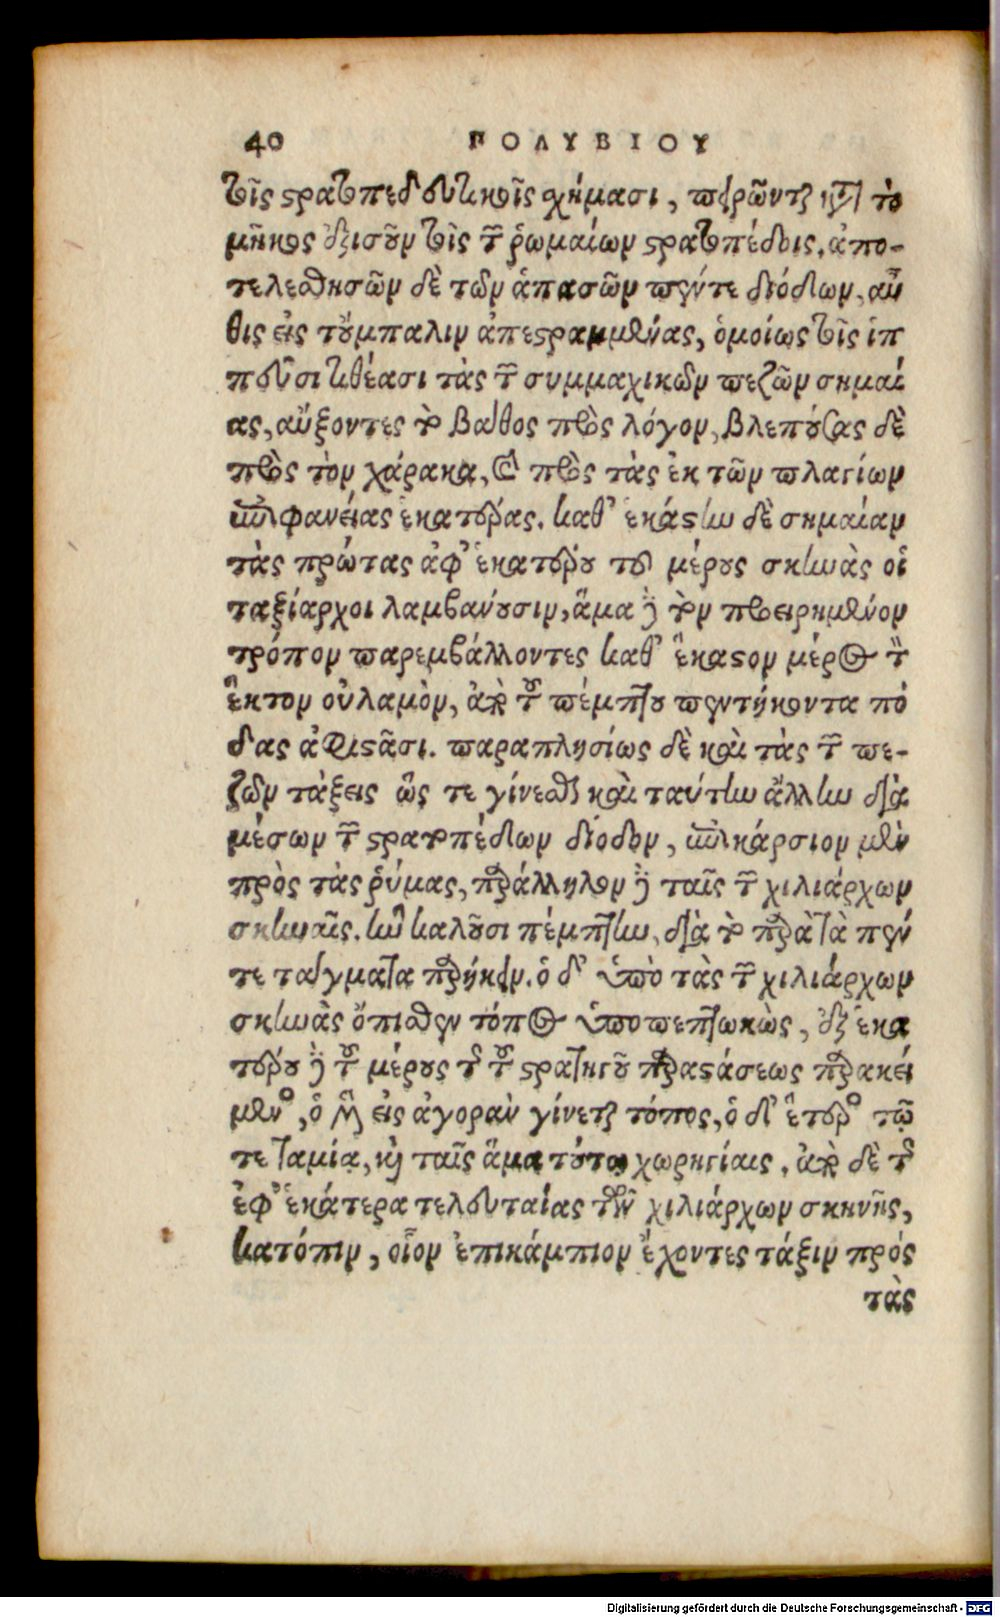 40 ΠΟΛΥΒΙΟΥ
τοῖς στρατοπεδευτικοῖς σχήμασι, πειρῶνται κατὰ τὸ
μῆκος ἐξισοῦν τοῖς τῶν ῥωμαίων στρατοπέδοις. ἀπο-
τελεσθησῶν δὲ τῶν ἁπασῶν πέντε διόδων, αὖ
θις εἰς τοὔμπαλιν ἀπεστραμμένας, ὁμοίως τοῖς ἱπ
πεῦσι τιθέασι τὰς τῶν συμμαχικῶν πεζῶν σημαί
ας, αὔξοντες τὸ βάθος πρὸς λόγον, βλεπούσας δὲ
πρὸς τὸν χάρακα, καὶ πρὸς τὰς ἐκ τῶν πλαγίων
ἐπιφανείας ἑκατέρας. καθ' ἑκάστην δὲ σημαίαν
τὰς πρώτας ἀφ' ἑκατέρου τοῦ μέρους σκηνὰς οἱ
ταξίαρχοι λαμβάνουσιν, ἅμα δὲ τὸν προειρημένον
τρόπον παρεμβάλλοντες καθ' ἕκαστον μέρος τὸν
ἕκτον οὐλαμὸν, ἀπὸ τοῦ πέμπτου πεντήκοντα πό
δας ἀφιστᾶσι. παραπλησίως δὲ καὶ τὰς τῶν πε-
ζῶν τάξεις ὥς τε γίνεσθαι καὶ ταύτην ἄλλην διὰ
μέσων τῶν στρατοπέδων δίοδον, ἐπικάρσιον μὲν
πρὸς τὰς ῥύμας, παράλληλον δὲ ταῖς τῶν χιλιάρχων
σκηναῖς. ἣν καλοῦσι πέμπτην, διὰ τὸ παρὰ τὰ πέν
τε τάγματα παρήκειν. ὁ δ' ὑπὸ τὰς τῶν χιλιάρχων
σκηνὰς ὄπισθεν τόπος ὑποπεπτωκὼς, ἐξ ἑκα
τέρου δὲ τοῦ μέρους τῆς τοῦ στρατηγοῦ παραστάσεως παρακεί
μενος, ὁ μὲν εἰς ἀγορὰν γίνεται τόπος, ὁ δ' ἕτερος τῷ
τε ταμίᾳ, καὶ ταῖς ἅμα τούτῳ χωρηγίαις. ἀπὸ δὲ τῆς
ἐφ' ἑκάτερα τελευταίας τῶν χιλιάρχων σκηνῆς,
κατόπιν, οἷον ἐπικάμπιον ἔχοντες τάξιν πρός
τὰς
Digitalisierung gefördert durch die Deutsche Forschungsgemeinschaft - DFG